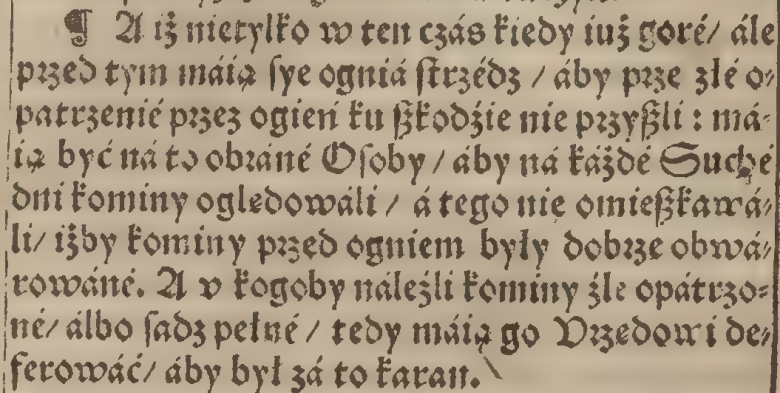 ¶ A iż nietylko w ten czás kiedy iuż goré/ ále
przed tym máią ſye ogniá ſtrzédz / áby prze zlé o⸗
patrzenié przez ogień ku ßkodźie nie przyßli : má⸗
ią być ná to obráné Oſoby / áby ná káżdé Suché
dni kominy oględowáli / á tego nie omießkawá⸗
li/ iżby kominy przed ogniem były dobrze obwá⸗
rowáné. A v kogoby náleźli kominy źle opátrzo⸗
né/ álbo ſadz pełné / tedy máią go Vrzędowi de⸗
ferowáć/ áby był zá to karan.